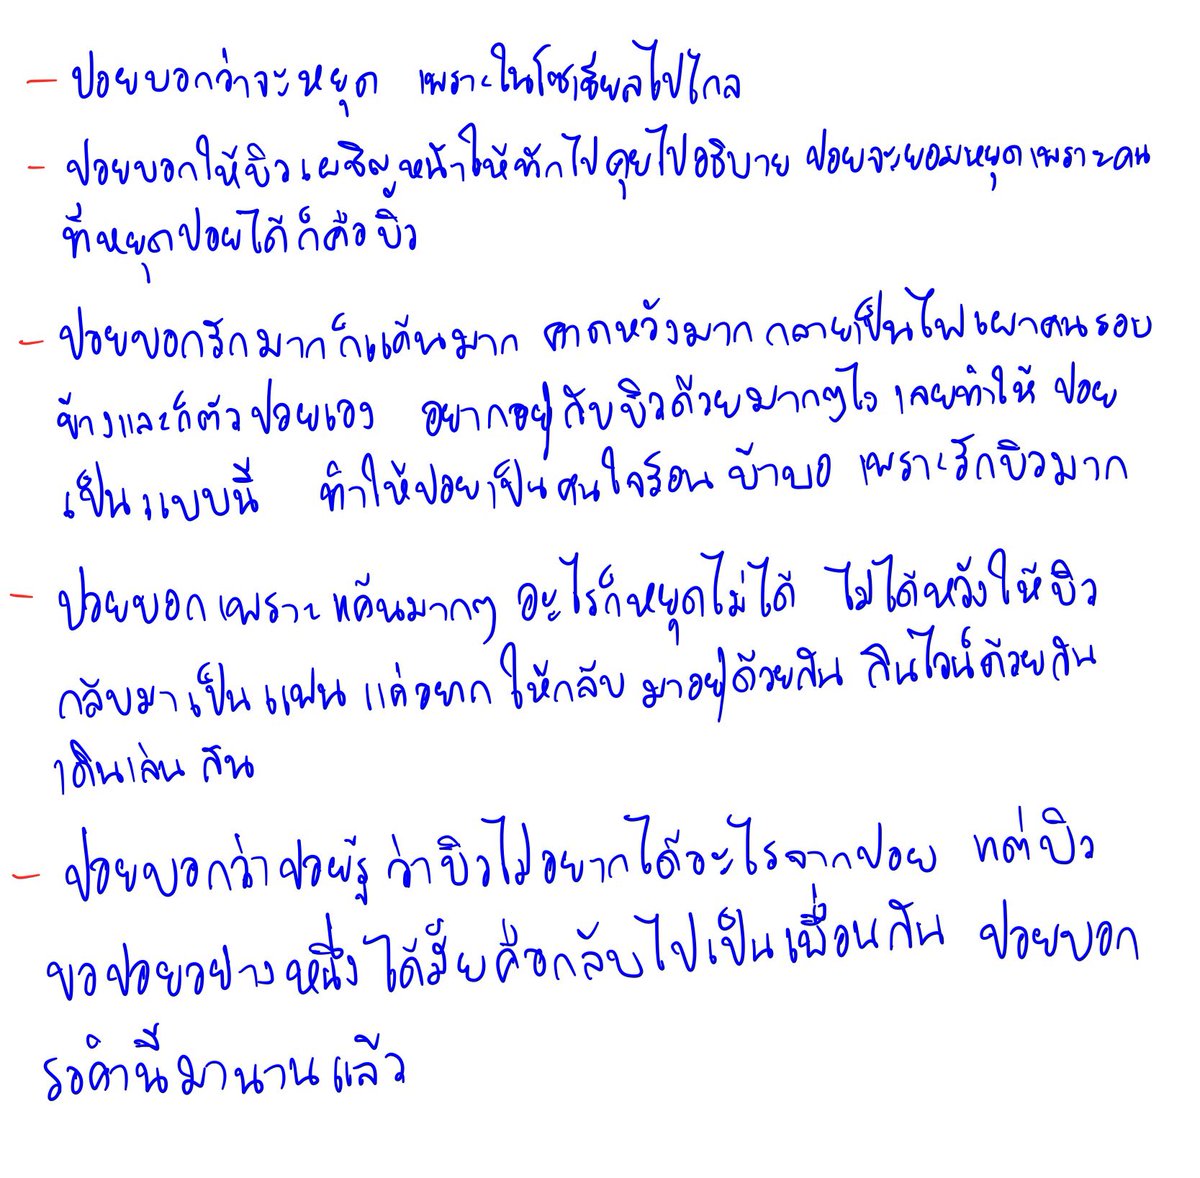 - ปอยบอกว่าจะหยุด เพราะในโซเชียลไปไกล
- ปอยบอกให้บิวเผชิญหน้าให้ทักไปคุยไปอธิบาย ปอยจะยอมหยุดเพราะคน
ที่หยุดปอยได้ก็คือบิ้ว
- ปอยบอกรักมากก็แค้นมาก คาดหวังมาก กลายเป็นไฟเผาคนรอบ
ข้างและก็ตัวปอยเอง อยากอยู่กับบิวด้วยมากๆไง เลยทำให้ ปอย
เป็นแบบนี้ ทำให้ปอยเป็นคนใจร้อน บ้าบอ เพราะรักบิวมาก
- ปอยบอกเพราะแค้นมากๆ อะไรก็หยุดไม่ได้ ไม่ได้หวังให้บิว
กลับมาเป็นแฟน แค่อยากให้กลับมาอยู่ด้วยกัน กินไวน์ด้วยกัน
เดินเล่นกัน
- ปอยบอกว่าปอยรู้ว่าบิวไม่อยากได้อะไรจากปอย แต่บิว
ขอปอยอย่างหนึ่งได้มั้ยคือกลับไปเป็นเพื่อนกัน ปอยบอก
รอคำนี้มานานแล้ว